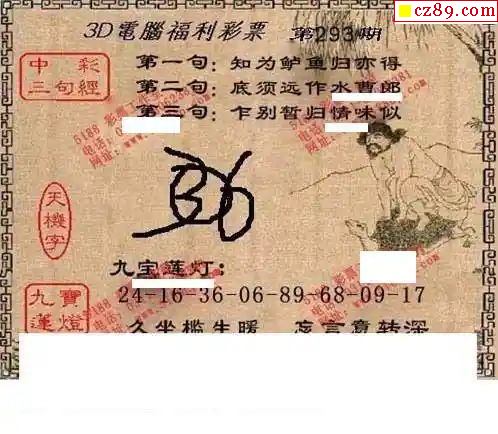 cz89.com
3D電腦福利彩票 第293期
中彩
三句經
第一句：知为鲈鱼归亦得
第二句：底须远作水曹郎
第三句：乍别暂归情味似
天機字
36
九宝莲灯：
九寶
蓮燈
24-16-36-06-89-68-09-17
久坐槛生暖 忘言意转深